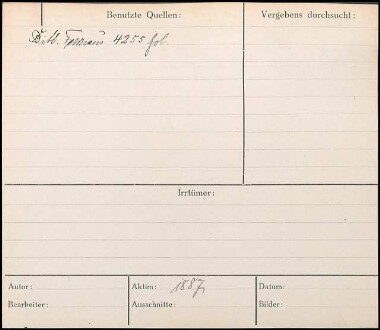 Benutzte Quellen:
Vergebens durchsucht:
Bibl. 4255 fol.
Irrtümer:
Autor:
Akten: 1887
Datum:
Bearbeiter:
Ausschnitte:
Bilder: